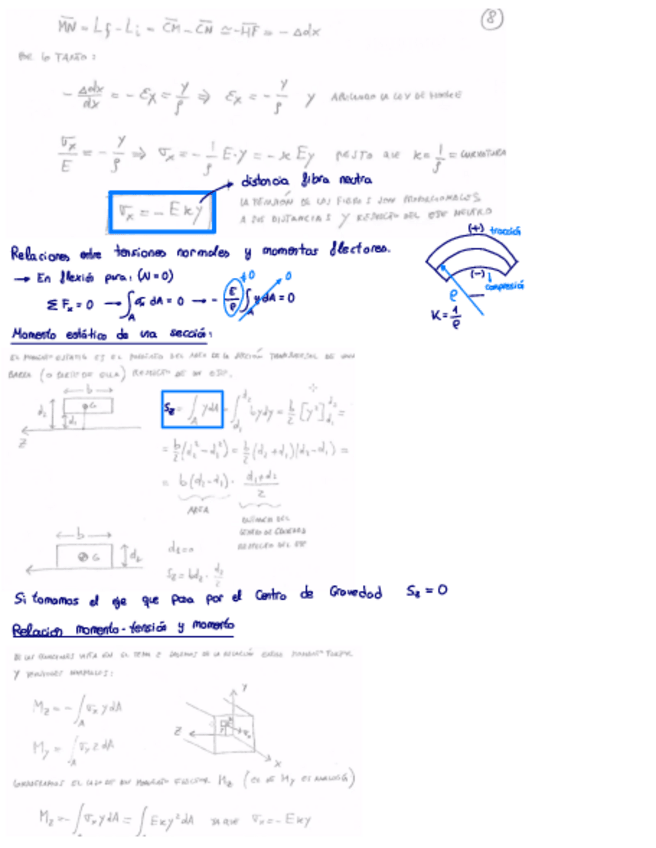 8
MN = Lf - Li = CM - CN ≃ - HF = - Δdx
DE LO TANTO:
- Δdx/dx = - εx = y/ρ ⇒ εx = - y/ρ y APLICANDO LA LEY DE HOOKE
σx/E = - y/ρ ⇒ σx = - 1/ρ E·y = - κ Ey PUESTO QUE κ = 1/ρ = CURVATURA
→ distancia fibra neutra
σx = - Eκy
LA TENSIÓN DE LAS FIBRAS SON PROPORCIONALES
A SUS DISTANCIAS Y RESPECTO DEL EJE NEUTRO
(+) tracción
(-) compresión
ρ
K = 1/ρ
Relaciones entre tensiones normales y momentos flectores.
→ En flexión pura: (N=0)
Σ Fx = 0 → ∫A σx dA = 0 → - E/ρ ∫A y dA = 0
≠0
0
Momento estático de una sección:
EL MOMENTO ESTÁTICO ES EL PRODUCTO DEL ÁREA DE LA SECCIÓN TRANSVERSAL DE UNA
BARRA (O PARTE DE ELLA) RESPECTO DE UN EJE.
b
G
d2
d1
Z
Sz = ∫A y dA = ∫d1 d2 b y dy = b/2 [y²]d1 d2 =
= b/2 (d2² - d1²) = b/2 (d2 + d1)(d2 - d1) =
= b(d2 - d1) · d1 + d2/2
ÁREA
DISTANCIA DEL
CENTRO DE GRAVEDAD
RESPECTO DEL EJE
b
G
d2
d1 = 0
Sz = bd2 · d2/2
Si tomamos el eje que pasa por el Centro de Gravedad Sz = 0
Relacion momento-tensión y momento
Y TENSIONES NORMALES:
Mz = - ∫A σx y dA
My = ∫A σx z dA
Y
Z
X
CONSIDERAMOS EL CASO DE UN MOMENTO FLECTOR Mz (EL DE My ES ANÁLOGO)
Mz = - ∫ σx y dA = ∫ Eκy² dA YA QUE σx = - Eκy